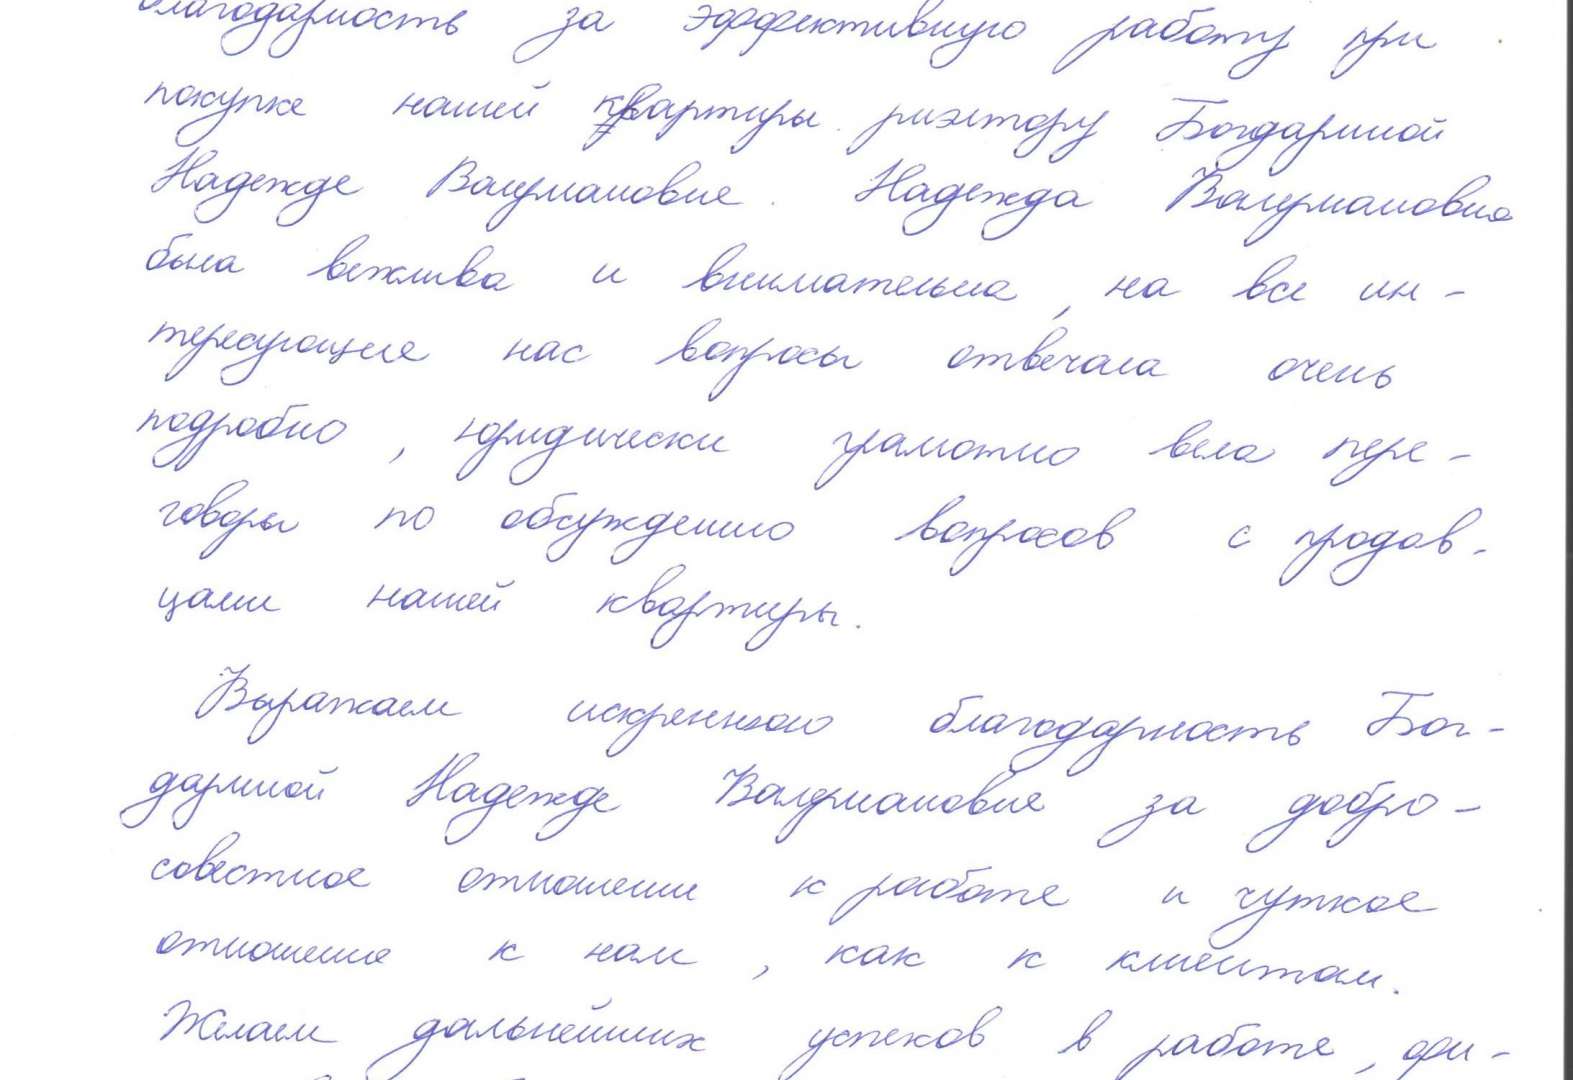 благодарность за эффективную работу при
покупке нашей квартиры риэлтору Богдариной
Надежде Валериановне. Надежда Валериановна
была вежлива и внимательна, на все ин-
тересующие нас вопросы отвечала очень
подробно, юридически грамотно вела пере-
говоры по обсуждению вопросов с продав-
цами нашей квартиры.
Выражаем искреннюю благодарность Бог-
дариной Надежде Валериановне за добро-
совестное отношение к работе и чуткое
отношение к нам, как к клиентам.
Желаем дальнейших успехов в работе, фи-